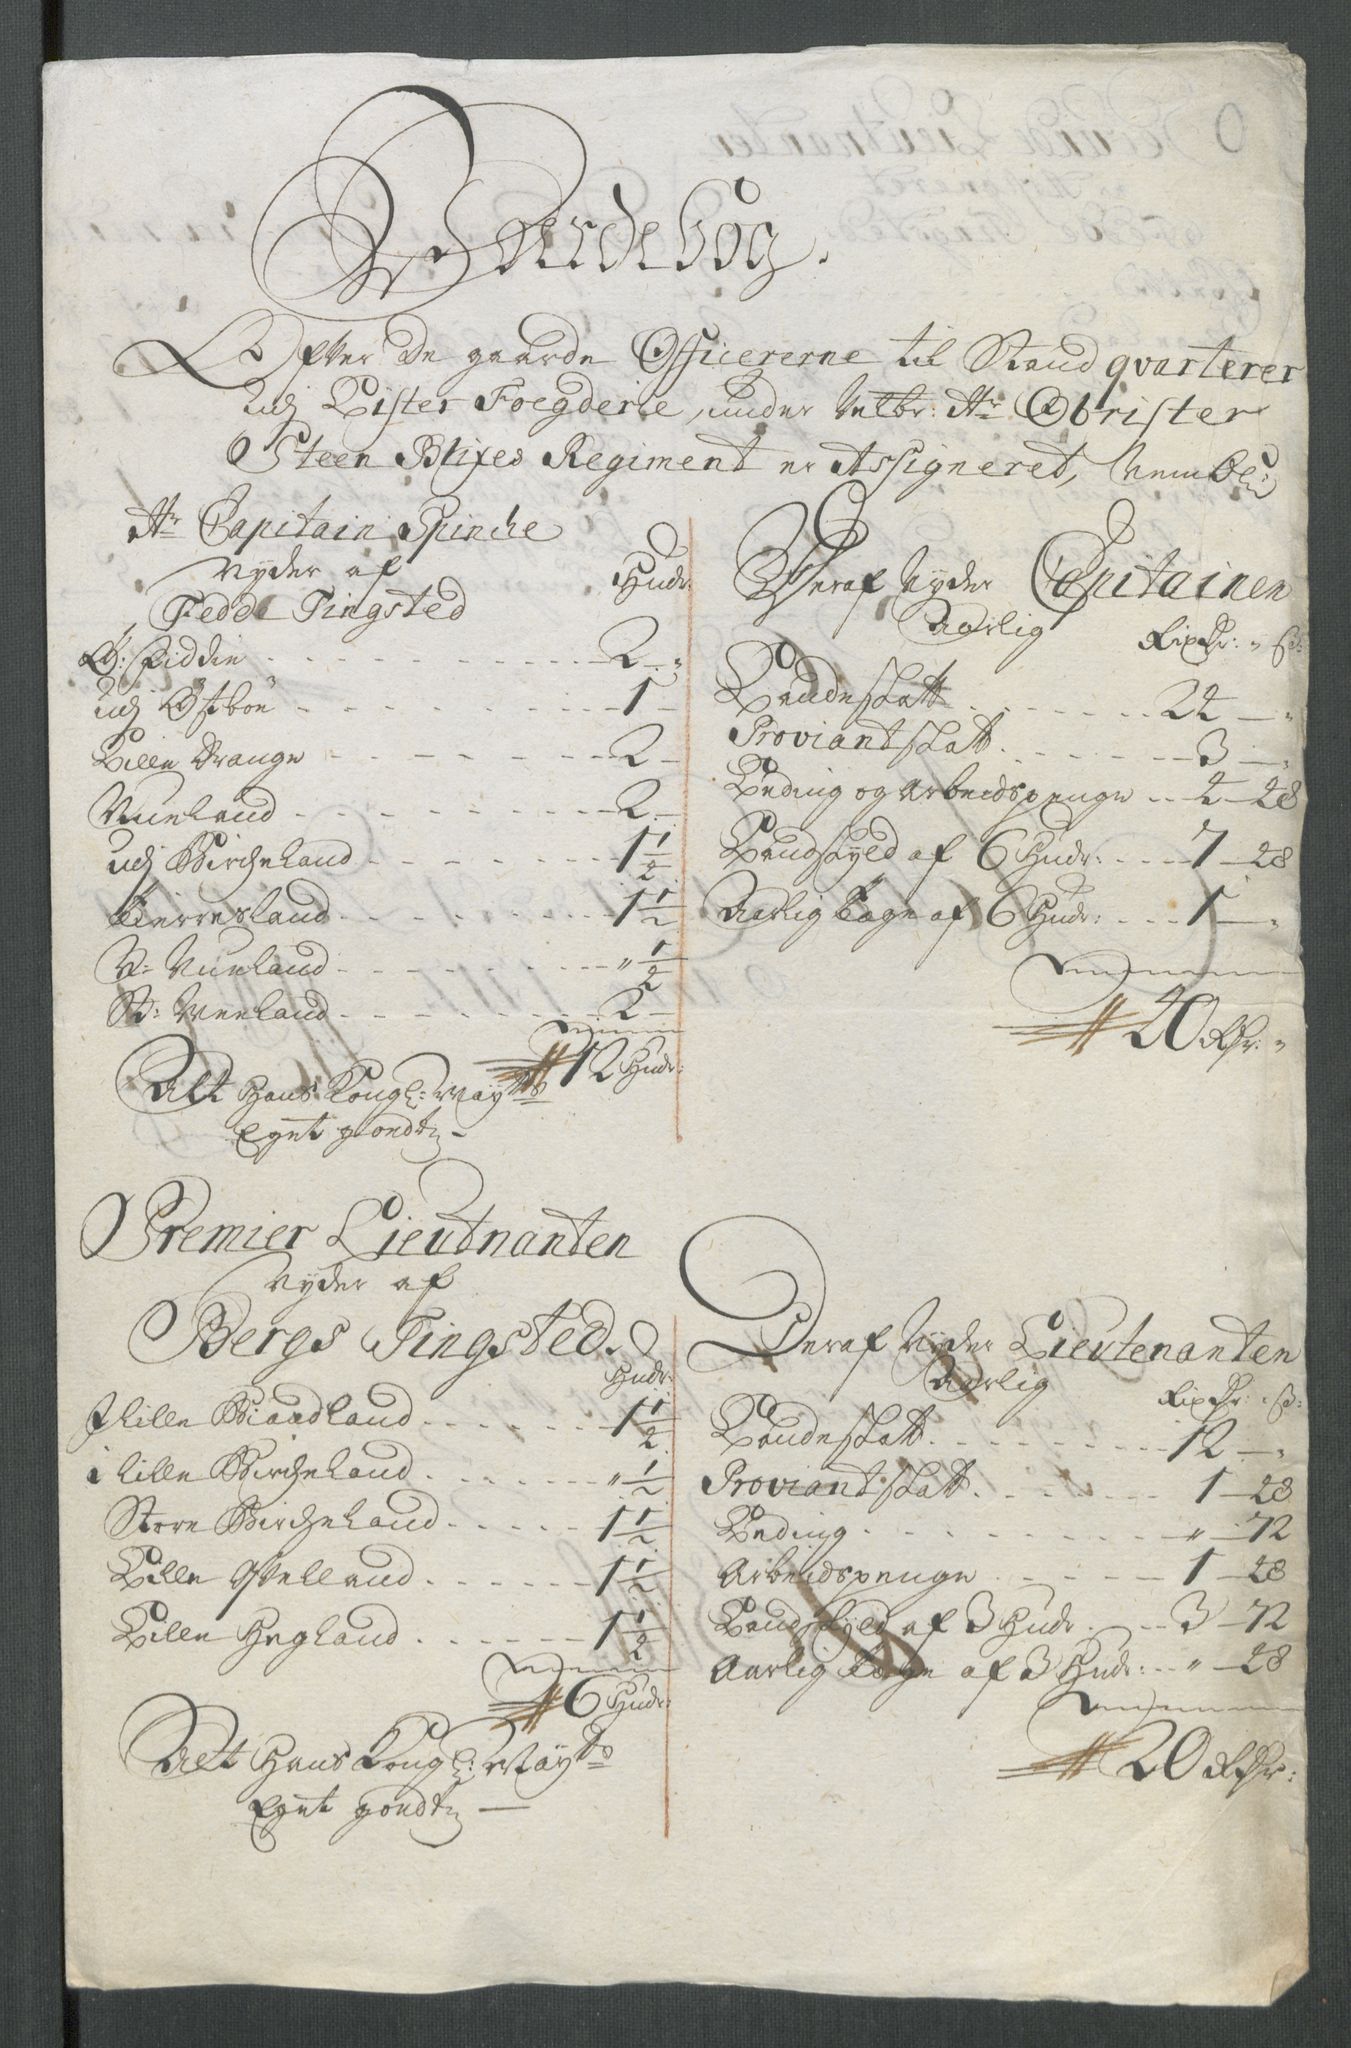 Jordebog.
Ofver de gaarde Officererne til Stand qvarterer
udj Lister Foegderie, under Velbr: Hr Obrister
Steen Blixes Regiment er Assigneret, Nembl:
Hr Capitain Spinche
Nyder af
Fedde Tingsted
Hudr:
Ø: Fidden 2 - "
udj Østbøe 1 -
Lille Drange 2 -
Nueland 2 -
udj Bircheland 1 1/2
Bierresland 1 1/2
N: Nueland " 1/2
St: Nueland 2 -
12 Hudr:
Alt Hans Kongl: Mayts
Eget goedtz -
Deraf Nyder Capitainen
Aarlig
Rixdr: " s:
Leedeskatt 24 - "
Proviantskatt 3 - "
Leding og Arbeidspenge 4 - 48
Landskyld af 6 Hudr: 7 - 48
Aarlig Tage af 6 Hudr: 1 - "
40 Rdr: "
Premier Lieutnanten
Nyder af
Bergs Tingsted.
Hudr:
J Lille Birchland 1 1/2
i Lille Bircheland " 1/2
Store Birchelland 1 1/2
Lille Qvelland 1 1/2
Lille Hegland 1 1/2
6 Hudr:
Alt Hans Kongl: Mayts
Eget goedtz -
Deraf Nyder Lieutenanten
Aarlig
Rixdr: s:
Leedeskatt 12 - "
Proviantskatt 1 - 48
Leding " - 72
Arbeidspenge 1 - 48
Landskyld af 3 Hudr 3 - 72
Aarlig Tage af 3 Hudr: " - 48
20 Rdr: